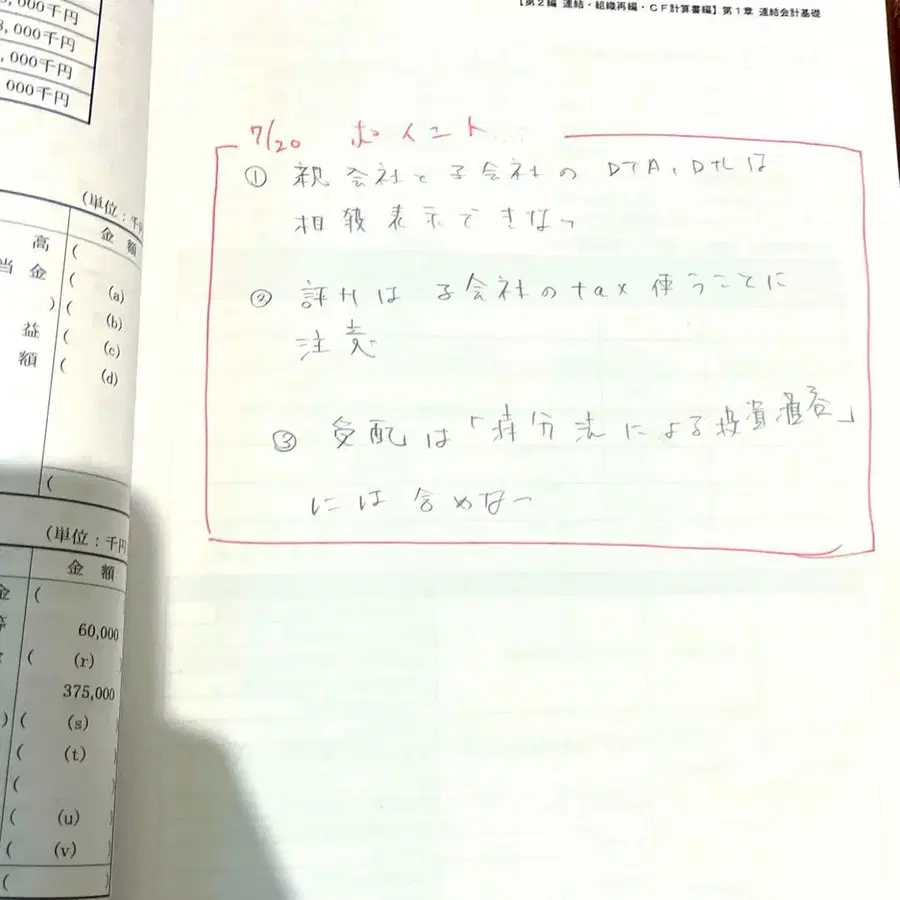 【第2編 連結・組織再編・CF計算書編】第1章 連結会計基礎
,000千円
,000千円
,000千円
000千円
(単位：千円
金 額
高 (
当 金 ( (a)
) ( (b)
益 ( (c)
額 ( (d)
(
(単位：千円
金 額
金 (
60,000
( (r)
375,000
) ( (s)
( (t)
(
( (u)
( (v)
(
7/20 ポイント
① 親会社と子会社の DTA、DTLは
相殺表示できない
② 評サは 子会社のtax 使うことに
注意
③ 受配は「持分法による投資損益」
には含めない